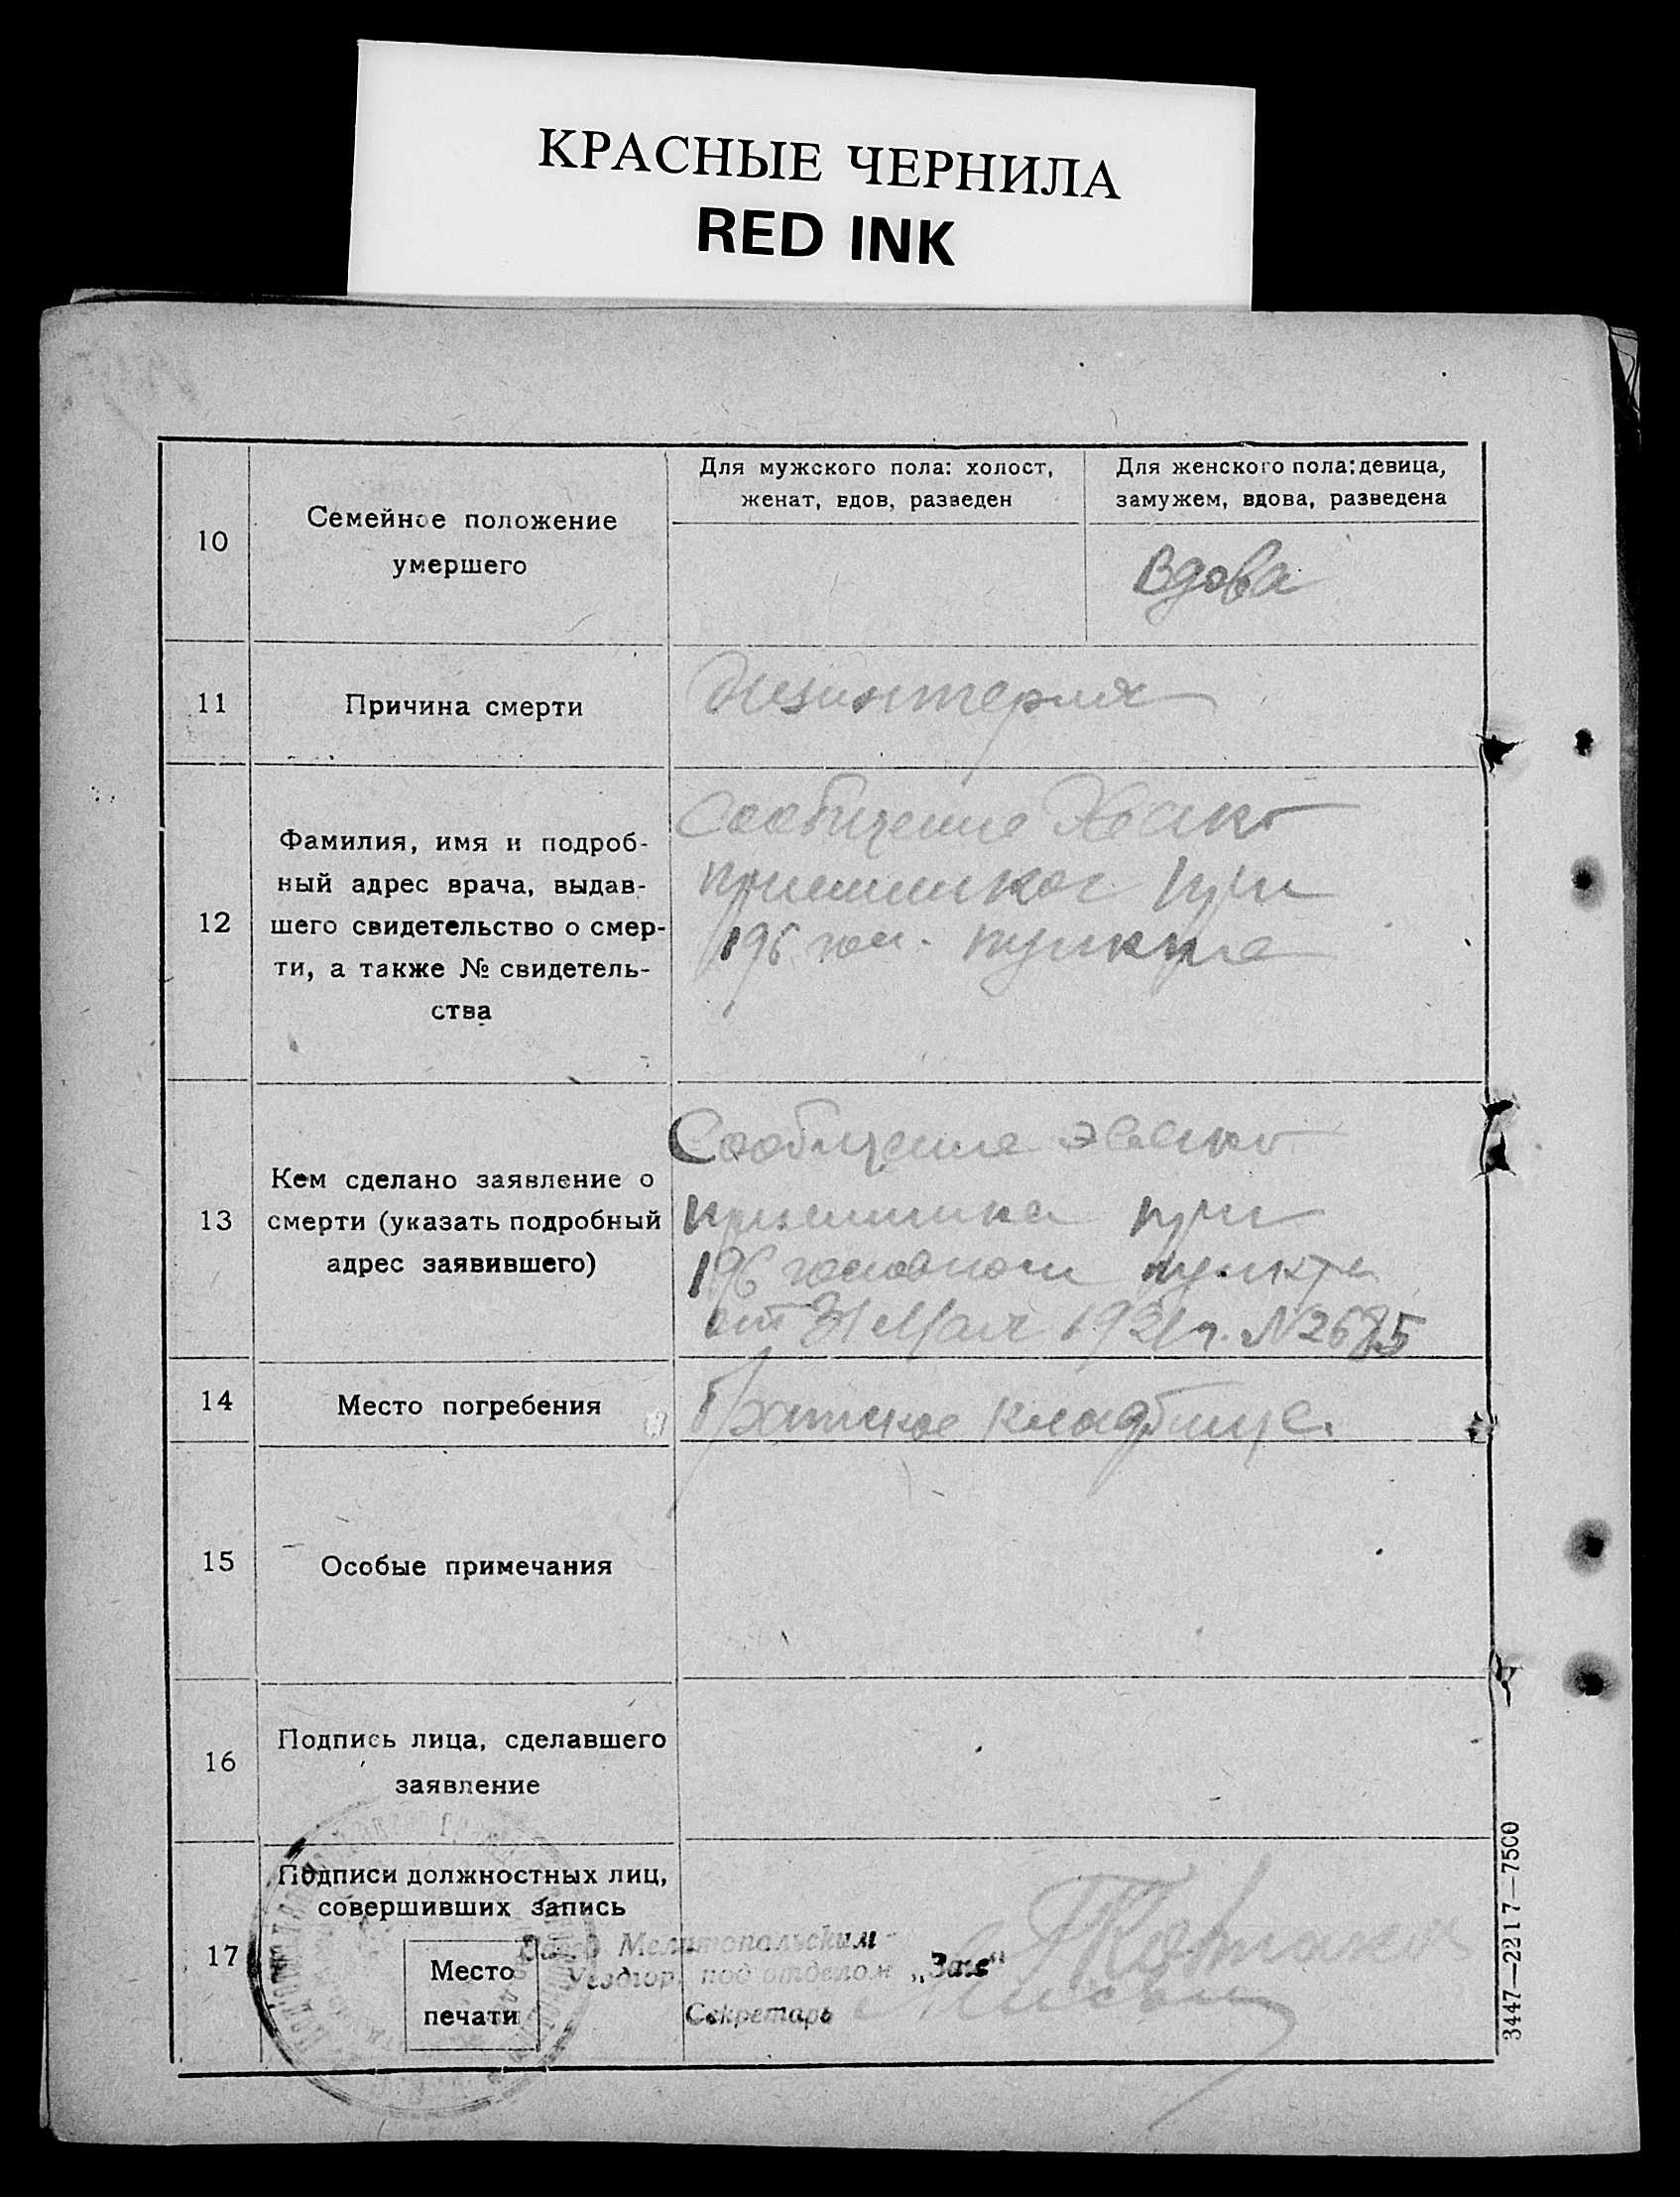 КРАСНЫЕ ЧЕРНИЛА
RED INK
10
Семейное положение
умершего
Для мужского пола: холост,
женат, вдов, разведен
Для женского пола: девица,
замужем, вдова, разведена
Вдова
11
Причина смерти
Дизинтерия
12
Фамилия, имя и подроб-
ный адрес врача, выдав-
шего свидетельство о смер-
ти, а также № свидетель-
ства
Сообщение Эвако
при
196 гол. пункте
13
Кем сделано заявление о
смерти (указать подробный
адрес заявившего)
Сообщение эвако
приемника при
196 головном пункте
от 31 Мая 1921 г. N 2685
14
Место погребения
кладбище.
15
Особые примечания
16
Подпись лица, сделавшего
заявление
17
Подписи должностных лиц,
совершивших запись
Место
печати
Мелитопольским
Уездгор. под отделом „Загс"
Секретарь
3447—2217—7500